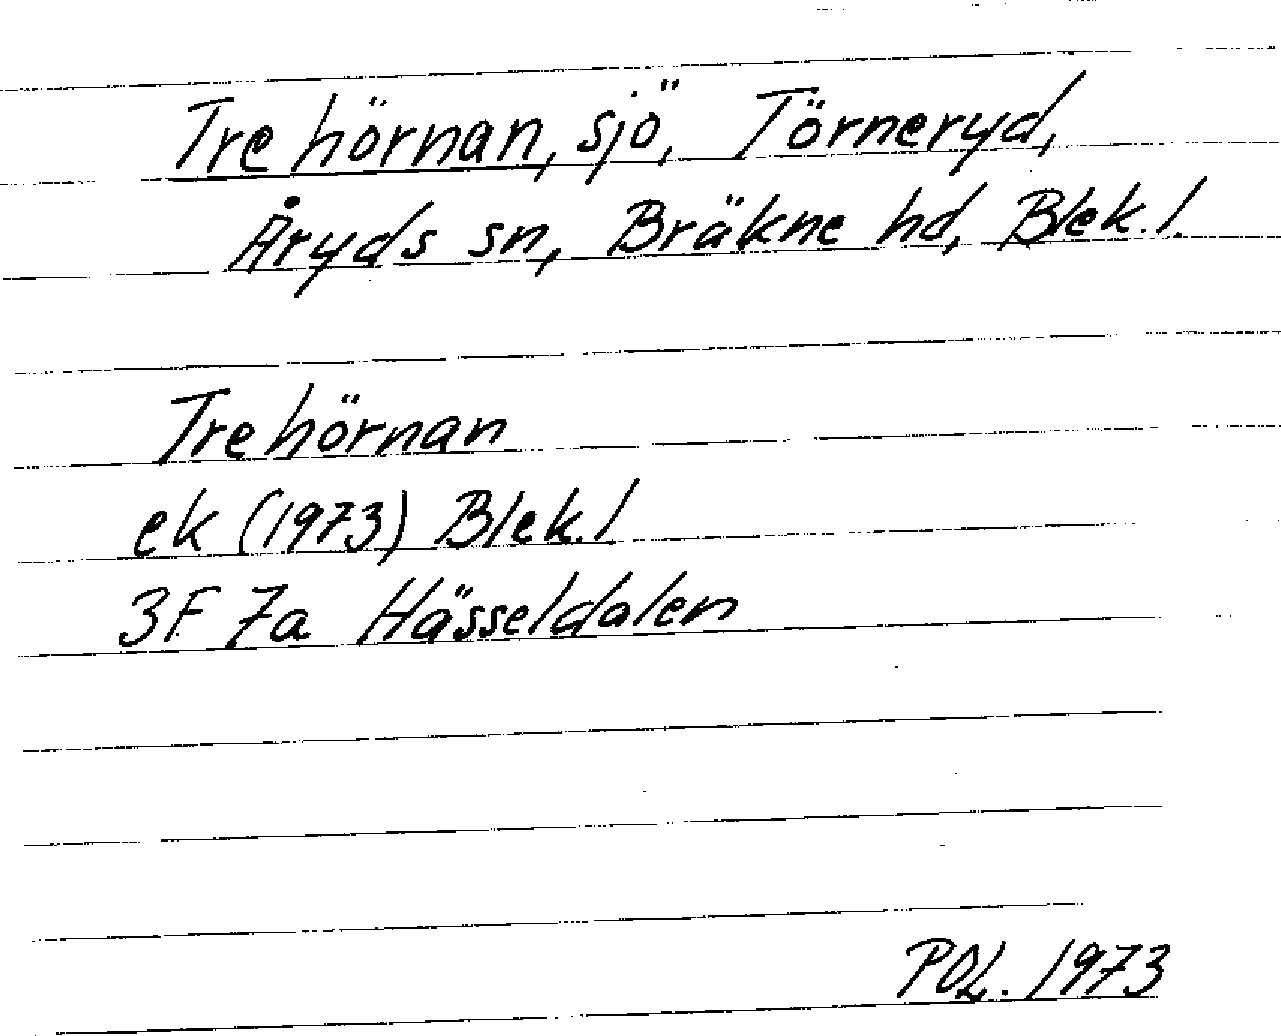 Trehörnan, sjö, Törneryd,
Åryds sn, Bräkne hd, Blek. l.
Trehörnan
ek (1973) Blek. l
3F 7a Hässeldalen
POL. 1973